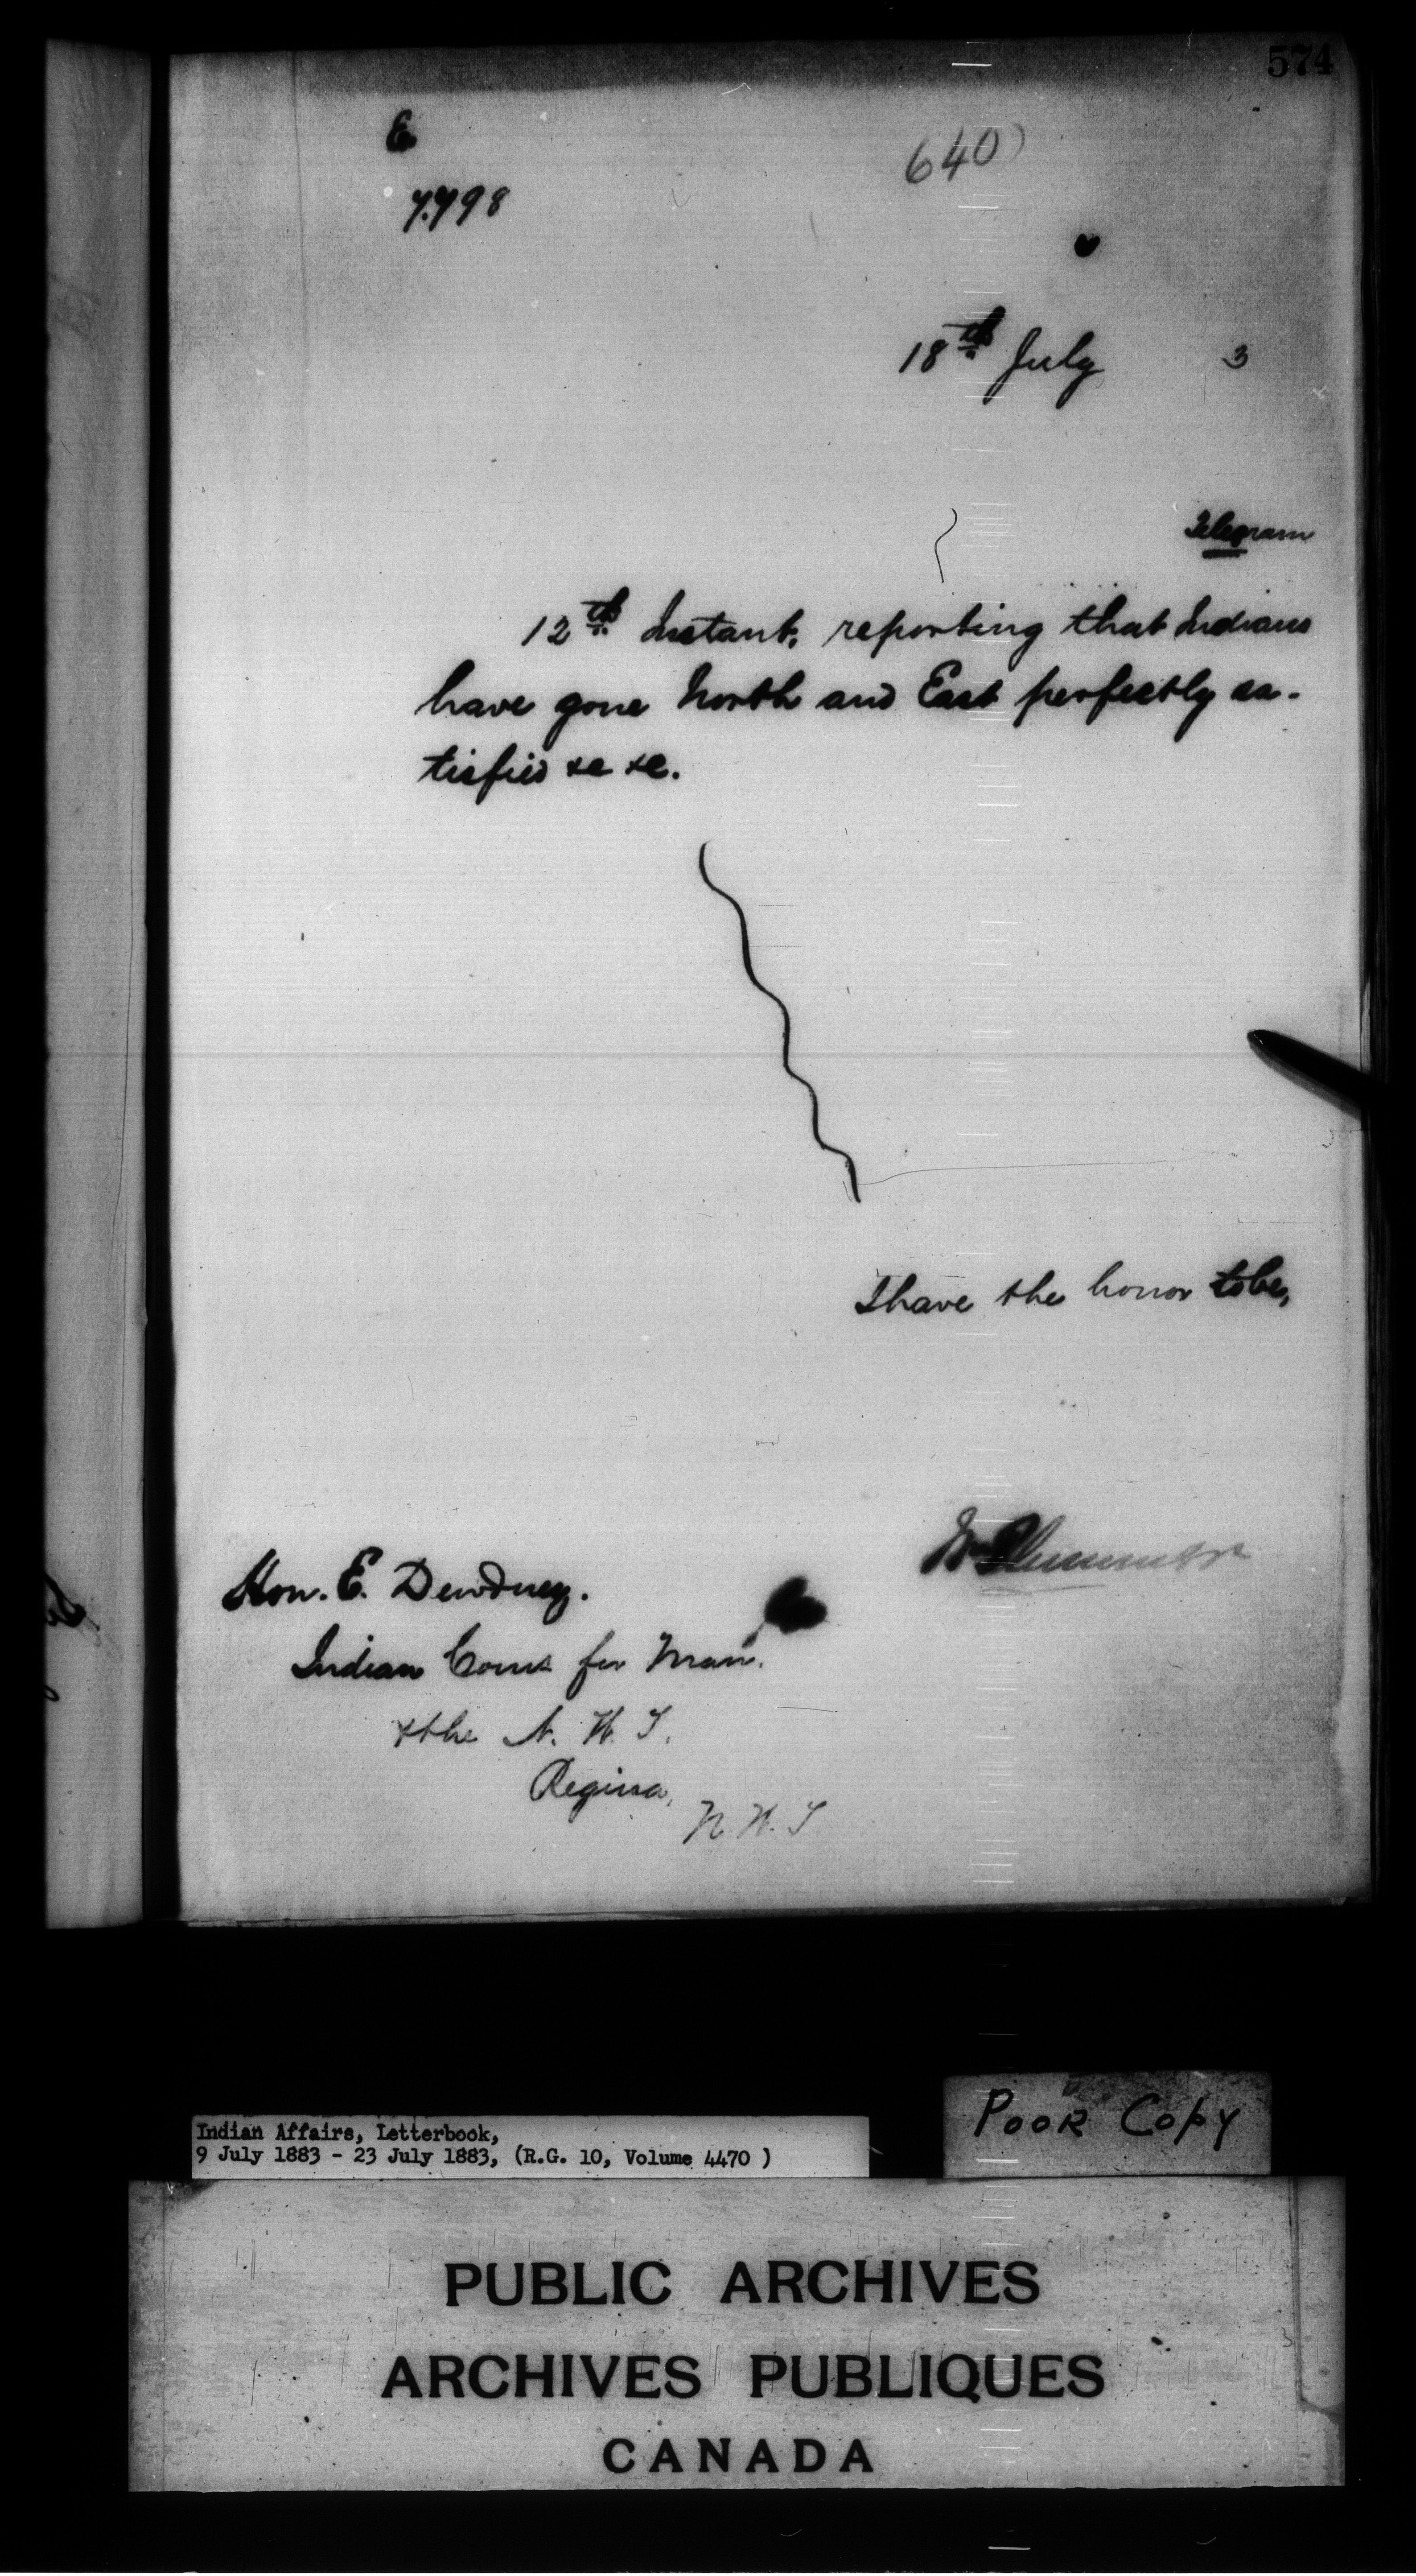 574
E
640
7.798
18th July 3
Telegram
12th Instant, reporting that Indians
have gone North and East perfectly sa-
tisfied &c &c.
I have the honor to be,
Hon. E. Dewdney.
Indian Coms for Man.
& the N. W. T.
Regina,
N. W. T
Poor Copy
Indian Affairs, Letterbook,
9 July 1883 - 23 July 1883, (R.G. 10, Volume 4470 )
PUBLIC ARCHIVES
ARCHIVES PUBLIQUES
CANADA